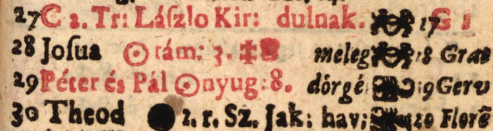 27 C 2. Tr: László Kir: dulnak. 17 G
28 Josua ☉ tám: 3. meleg 18 Grat
29 Péter és Pál ☉ nyug: 8. dörgé 19 Gerv
30 Theod ● 2. r. Sz. Jak: hav; 20 Flore